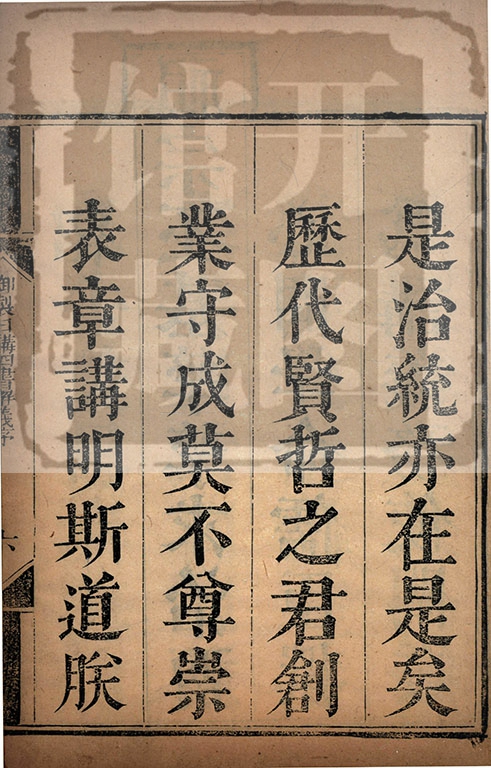 是治統亦在是矣
歷代賢哲之君創
業守成莫不尊崇
表章講明斯道朕
御製日講四書解義序
六
开图
馆藏